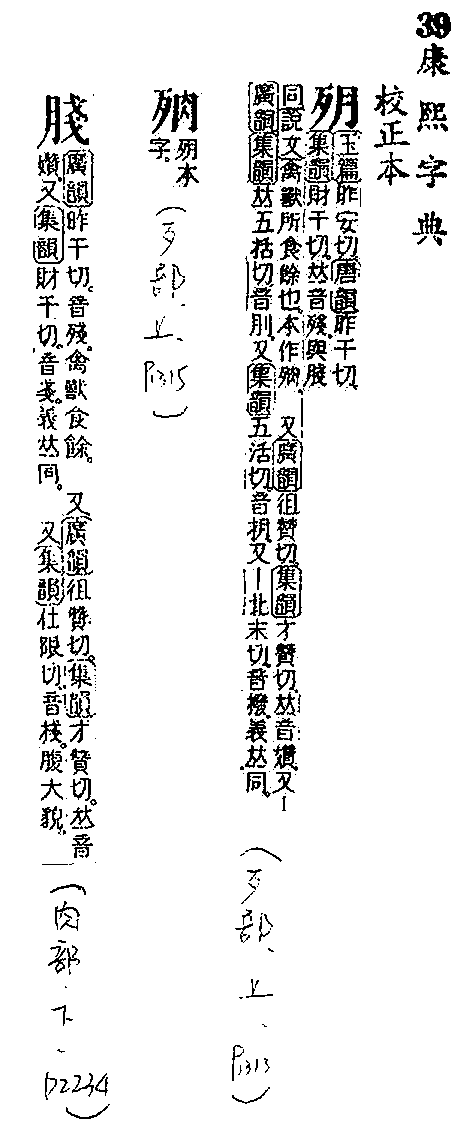 39康熙字典
校正本
𣦼
玉篇昨安切。唐韻昨干切。
集韻財干切。𠀤音殘。與䏼
同。說文禽獸所食餘也。本作𣧻。 又廣韻徂贊切。集韻才贊切。𠀤音㜺。又—
廣韻集韻𠀤五括切。音刖。又集韻五活切。音枂。又—北末切。音撥。義𠀤同。
(歹部、上、P1313)
𣧻
𣦼本
字。
(歹部、上、P1315)
䏼
廣韻昨干切。音殘。禽獸食餘。 又廣韻徂贊切。集韻才贊切。𠀤音
㜺。又集韻財干切。音戔。義𠀤同。 又集韻仕限切。音棧。腹大貌。
(肉部、下、P2234)